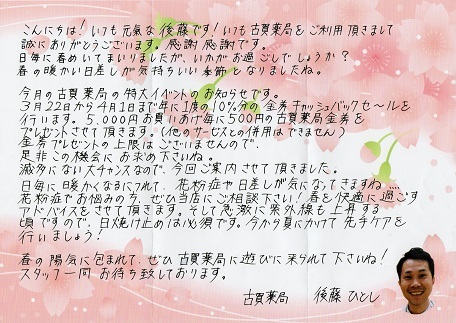 こんにちは!いつも元気な後藤です!いつも古賀薬局をご利用頂きまして
誠にありがとうございます。感謝感謝です。
日毎に春めいてまいりましたが、いかがお過ごしでしょうか?
春の暖かい日差しが気持ちいい季節となりましたね。
今月の古賀薬局の特大イベントのお知らせです。
3月22日から4月1日まで年に1度の10%分の金券キャッシュバックセールを
行います。5,000円お買いあげ毎に500円の古賀薬局金券を
プレゼントさせて頂きます。(他のサービスとの併用はできません)
金券プレゼントの上限はございませんので、
是非この機会にお求め下さいね。
滅多にない大チャンスなので、今回ご案内させて頂きました。
日毎に暖かくなるにつれて、花粉症や日差しが気になってきますね....
花粉症でお悩みの方、ぜひ当店にご相談下さい!春を快適に過ごす
アドバイスをさせて頂きます。そして急激に紫外線も上昇する
頃ですので、日焼け止めは必須です。今から夏にかけて先手ケアを
行いましょう!
春の陽気に包まれて、ぜひ古賀薬局に遊びに来られて下さいね!
スタッフ一同お待ち致しております。
古賀薬局 後藤ひとし